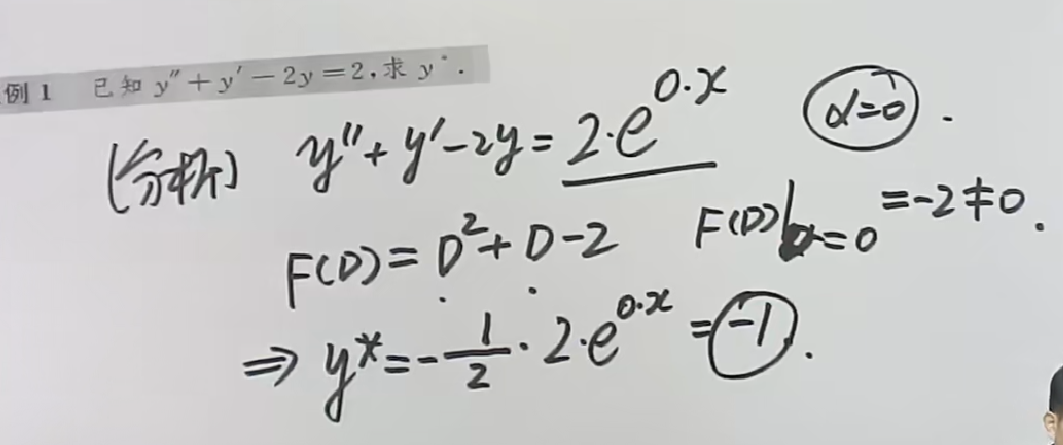 例 1 已知 y″+y′−2y=2,求 y*.
(分析) y″+y′−2y=2·e^{0·x} α=0.
F(D)=D²+D−2 F(D)|_{D=0}=−2≠0.
⇒ y*=−1/2·2·e^{0·x}=−1.